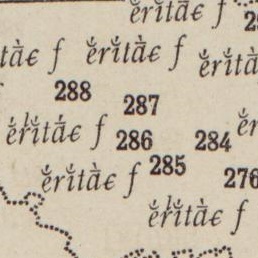 ěrĭtä̀ɛ f
tä̀ɛ f ě́rĭ́tä̀ɛ f ě́rĭ́tä̀
288 287
ě́ŕĭ́tä́ɛ f 286 284 ě́r
ě́rĭ́tä̀ɛ f 285 276
ě́ŕĭ́tä̀ɛ f